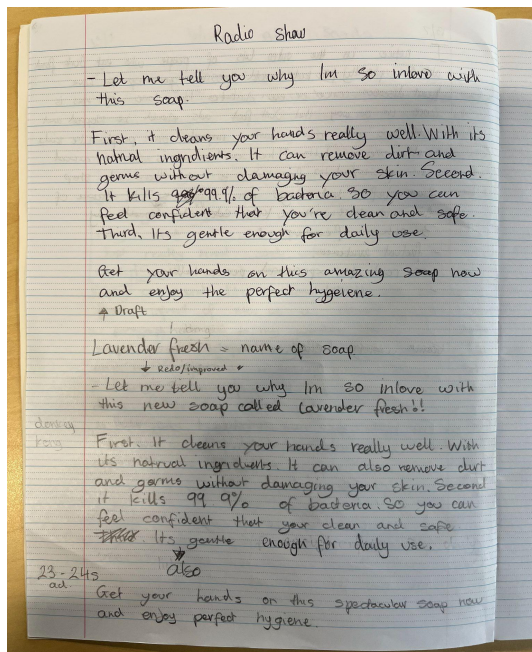 Radio show
- Let me tell you why Im so inlove with
this soap.
First, it cleans your hands really well. With its
natrual ingridients. It can remove dirt and
germs without damaging your skin. Second.
It kills 99.9% of bacteria. So you can
feel confident that you're clean and safe.
Third. Its gentle enough for daily use.
Get your hands on this amazing soap now
and enjoy the perfect hygeiene.
↑ Draft
Lavender fresh = name of soap
↓ Redo/improved
- Let me tell you why Im so inlove with
this new soap called Lavender fresh!!
donkey
kong
First. It cleans your hands really well. With
its natrual ingridients. It can also remove dirt
and germs without damaging your skin. Second
it kills 99.9% of bacteria. So you can
feel confident that your clean and safe
Its gentle enough for daily use.
also
23-24s
ad.
Get your hands on this spectacular soap now
and enjoy perfect hygiene.